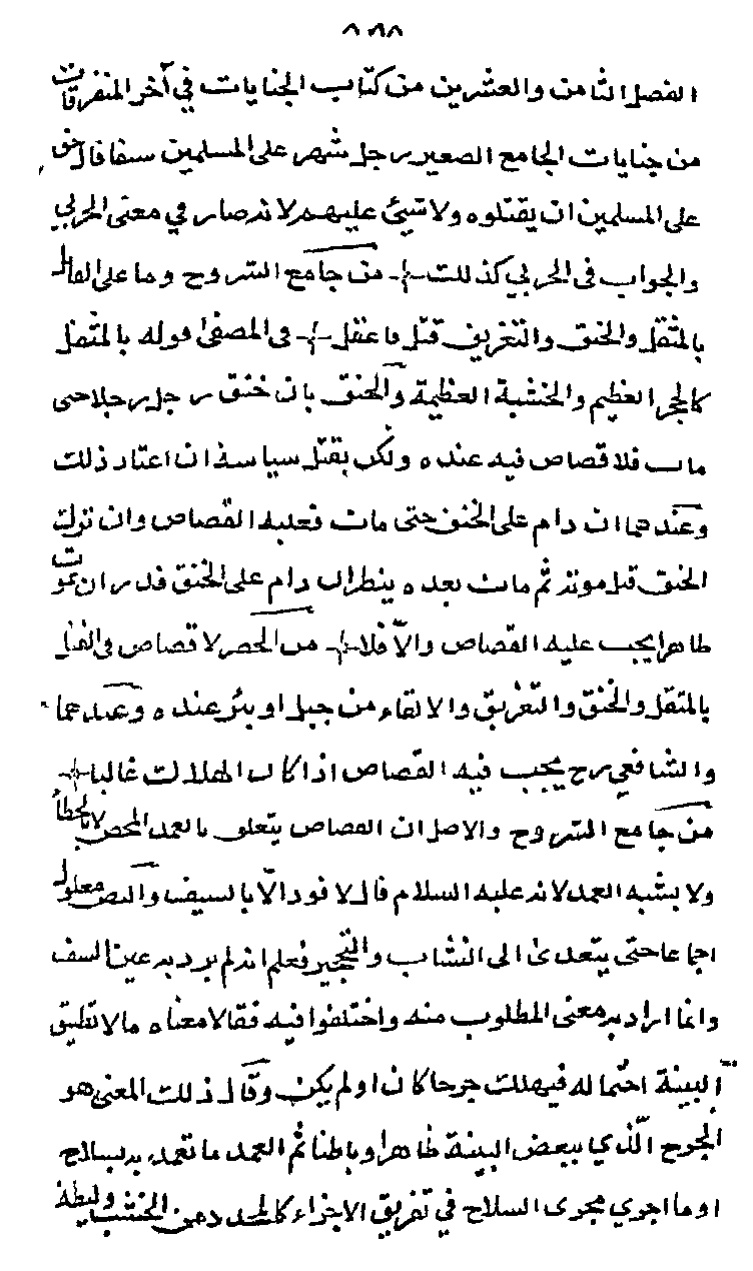 الفصل الثامن والعشرين من كتاب الجنايات في آخر المتفرقات
من جنايات الجامع الصغير رجل شهر على المسلمين سيفا قال حق
على المسلمين ان يقتلوه ولا شيئ عليهم لانه صار في معنى الحربي
والجواب في الحربي كذلك من جامع الشروح وما على القاتل
بالمثقل والخنق والتغريق قتل ما عقل في المصفى قوله بالمثقل
كالحجر العظيم والخشبة العظيمة والخنق بان خنق رجل رجلا حتى
مات فلا قصاص فيه عنده ولكن يقتل سياسة ان اعتاد ذلك
وعندهما ان دام على الخنق حتى مات فعليه القصاص وان ترك
الخنق قبل موته ثم مات بعده ينظر ان دام على الخنق قدر ان يموت
ظاهرا يجب عليه القصاص والّا فلا من الحصر لا قصاص في القتل
بالمثقل والخنق والتغريق والالقاء من جبل او بئر عنده وعندهما
والشافعي رح يجب فيه القصاص اذا كان الهلاك غالبا
من جامع الشروح والاصل ان القصاص يتعلق بالعمد المحض لا بالخطأ
ولا بشبه العمد لانه عليه السلام قال لا قود الّا بالسيف والنص معلول
اجماعا حتى يتعدى الى النشاب والخنجر فعلم انه لم يرد به عين السيف
وانما اراد به معنى المطلوب منه واختلفوا فيه فقالا معناه ما لا تطيق
البينة احتماله فيهلك جرحا كان او لم يكن وقال ذلك المعنى هو
الجرح الّذي ينقض البينة ظاهرا وباطنا ثم العمد ما تعمد به بسلاح
او ما اجري مجرى السلاح في تفريق الاجزاء كالمحدد من الخشب وليطة